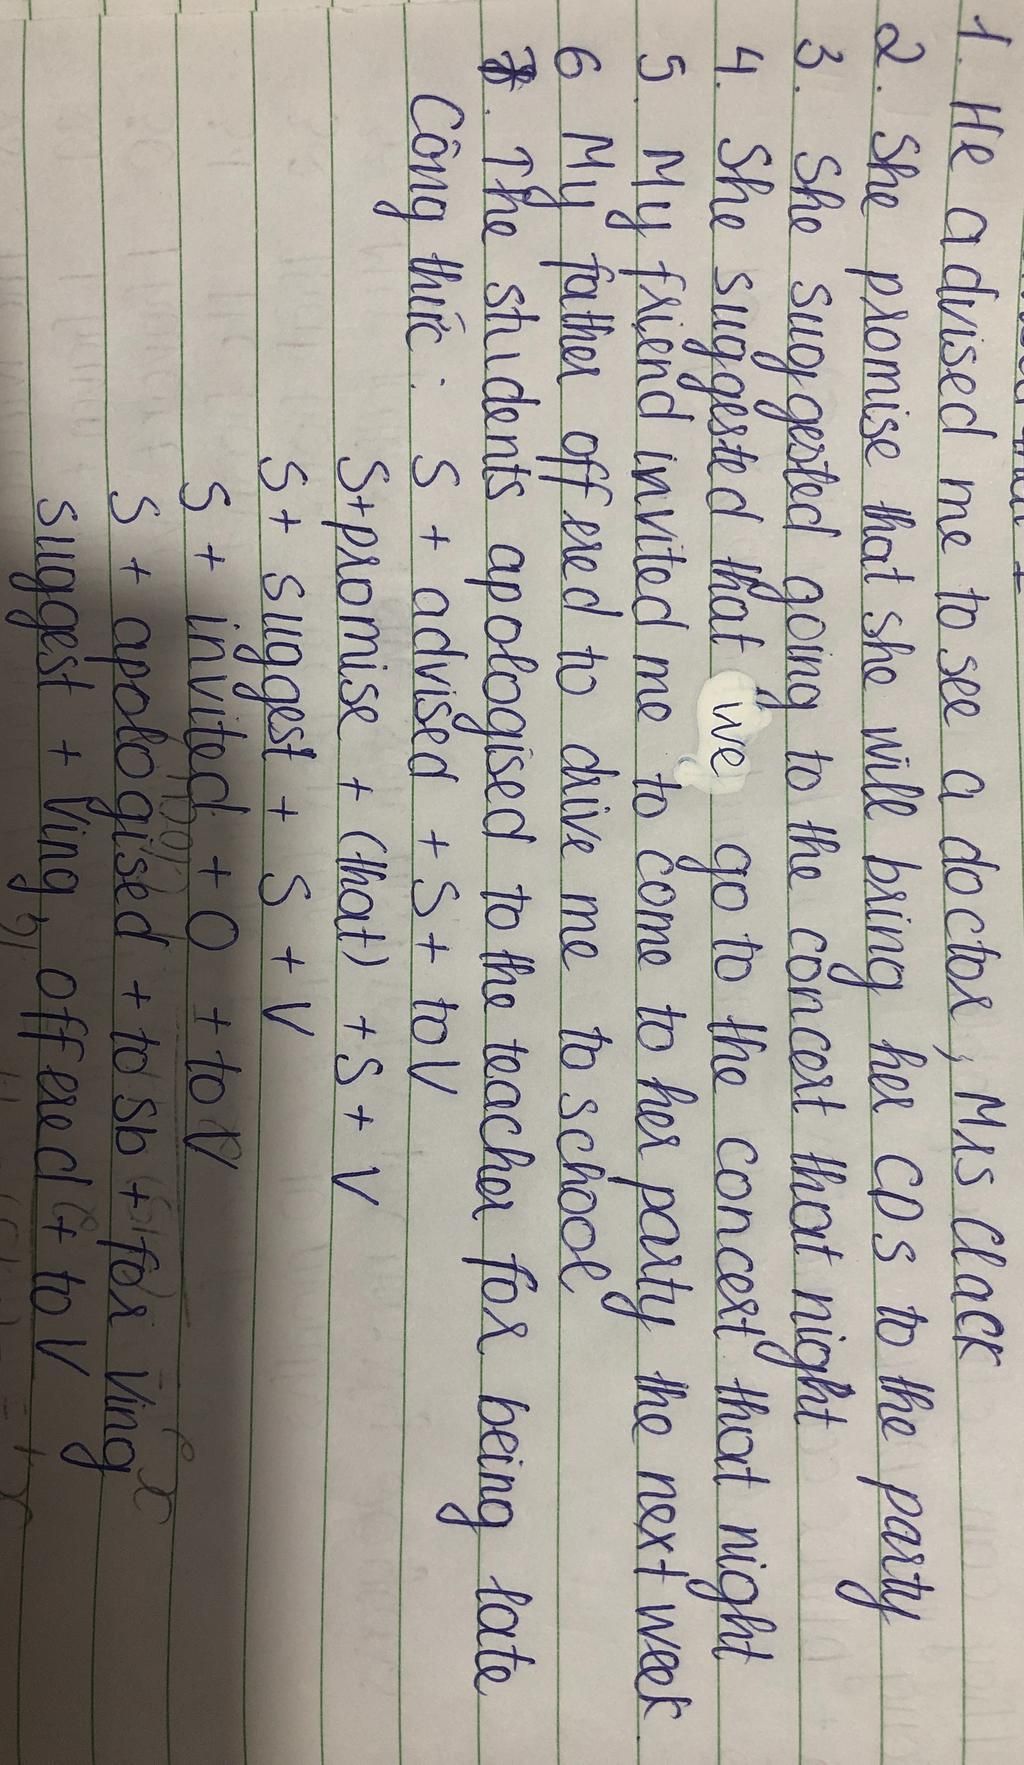 1. He advised me to see a doctor, Mrs Clack
2. She promise that she will bring her CDs to the party
3. She suggested going to the concert that night
4. She suggested that we go to the concert that night
5. My friend invited me to come to her party the next week
6 My father offered to drive me to school
7. The students apologised to the teacher for being late
Công thức: S + advised + S + to V
S + promise + (that) + S + V
S + suggest + S + V
S + invited + O + to V
S + apologised + to sb + for Ving
suggest + Ving, offered + to V